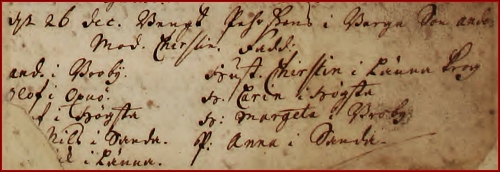 dpt 26 dec. Bengt Pehrssons i Berga Son And:
Mod. Chirstin. Fadd.
And. i Broby. Hust. Chirstin i Länna Krog
Olof i Onsö. H. Carin i Högsta
f i Högsta H: Margeta i Broby
Nils i Sanda. P: Anna i Sanda.
i Länna.